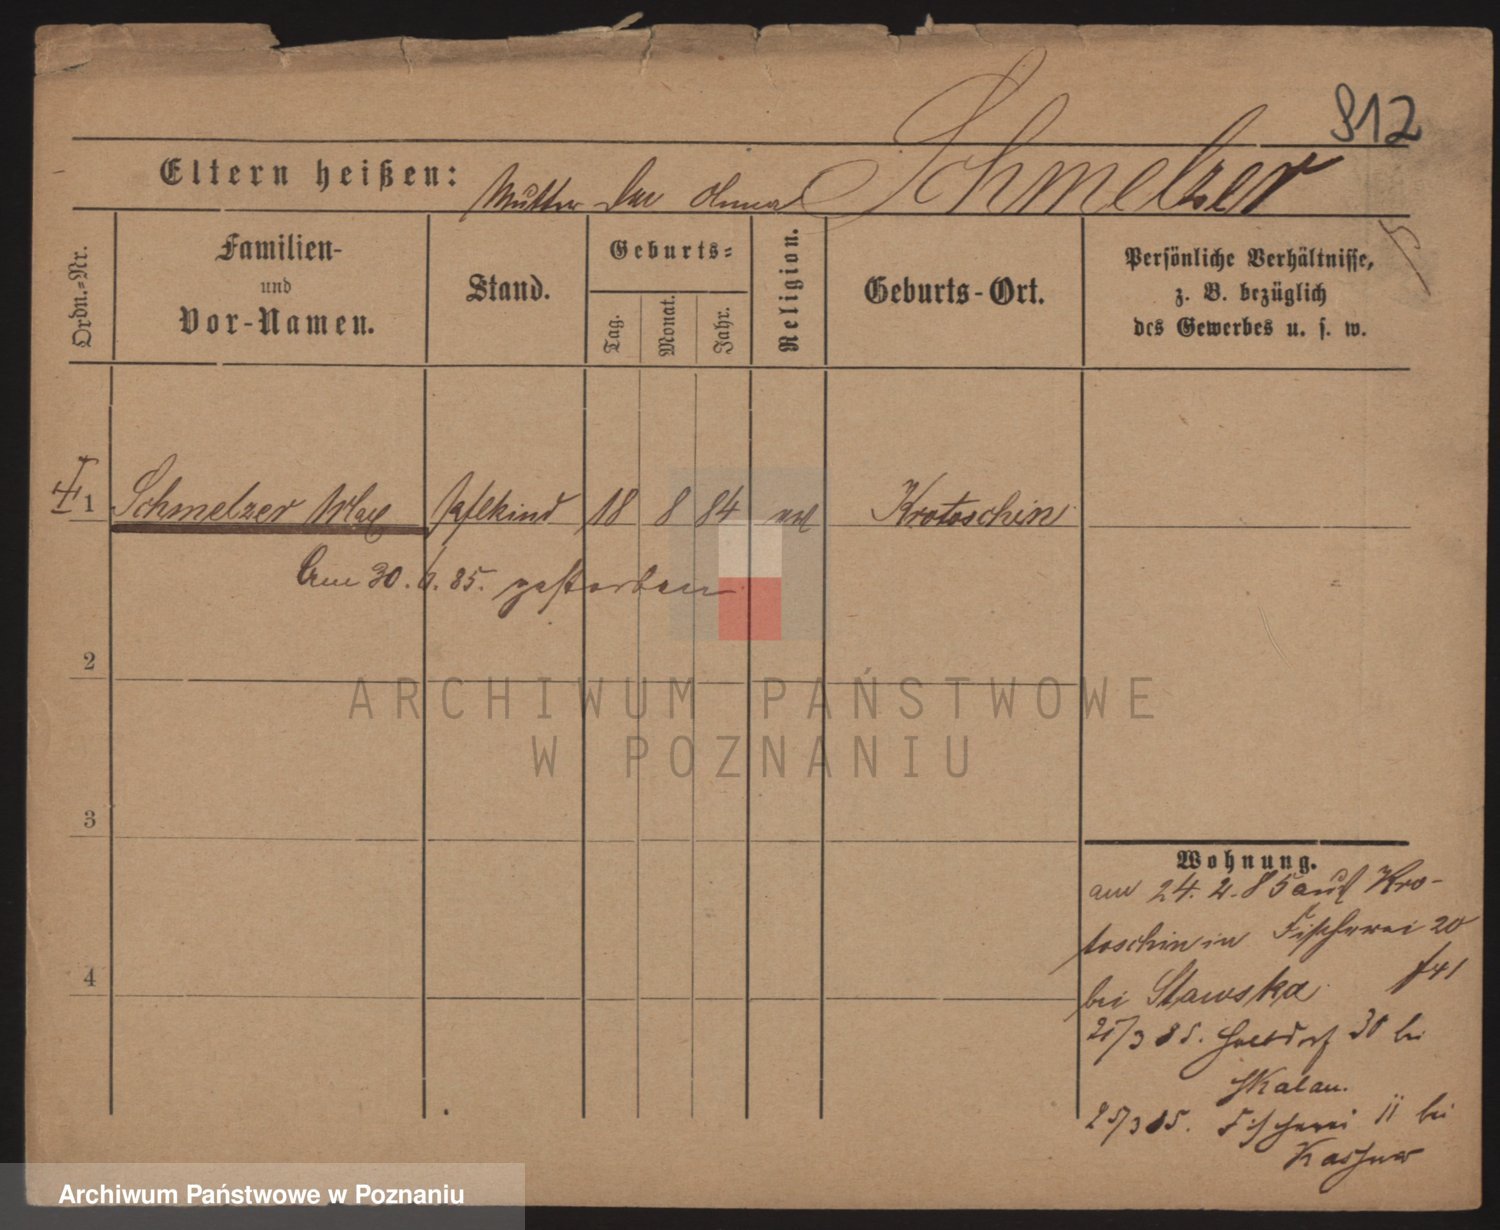 912
Eltern heißen: Mutter der Schmelzer
Ordn.=Nr.
Familien-
und
Vor-Namen.
Stand.
Geburts=
Tag.
Monat.
Jahr.
Religion.
Geburts-Ort.
Persönliche Verhältnisse,
z. B. bezüglich
des Gewerbes u. s. w.
1 Schmelzer Max Pflkind 18 8 84 Krotoschin
Am 30. 6. 85. gestorben
2
3
4
ARCHIWUM PAŃSTWOWE
W POZNANIU
Wohnung.
am 24. 2. 85 aus Kro-
toschin in Fischerei 20
bei Stawska
/3 85. 30 bei
Skalau.
25/3 85. Fischerei 11 bei
Archiwum Państwowe w Poznaniu